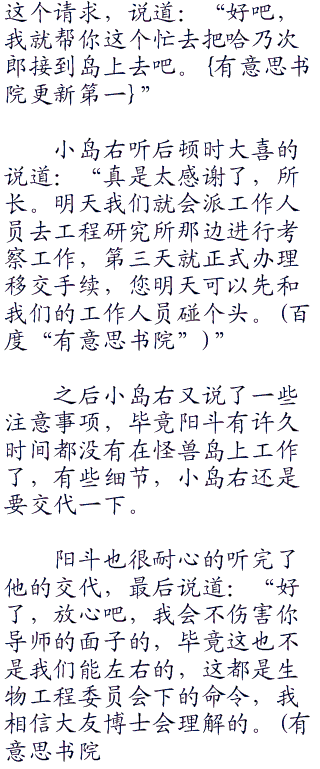 这个请求，说道：“好吧，
我就帮你这个忙去把哈乃次
郎接到岛上去吧。{有意思书
院更新第一}”
小岛右听后顿时大喜的
说道：“真是太感谢了，所
长。明天我们就会派工作人
员去工程研究所那边进行考
察工作，第三天就正式办理
移交手续，您明天可以先和
我们的工作人员碰个头。(百
度“有意思书院”)”
之后小岛右又说了一些
注意事项，毕竟阳斗有许久
时间都没有在怪兽岛上工作
了，有些细节，小岛右还是
要交代一下。
阳斗也很耐心的听完了
他的交代，最后说道：“好
了，放心吧，我会不伤害你
导师的面子的，毕竟这也不
是我们能左右的，这都是生
物工程委员会下的命令，我
相信大友博士会理解的。(有
意思书院